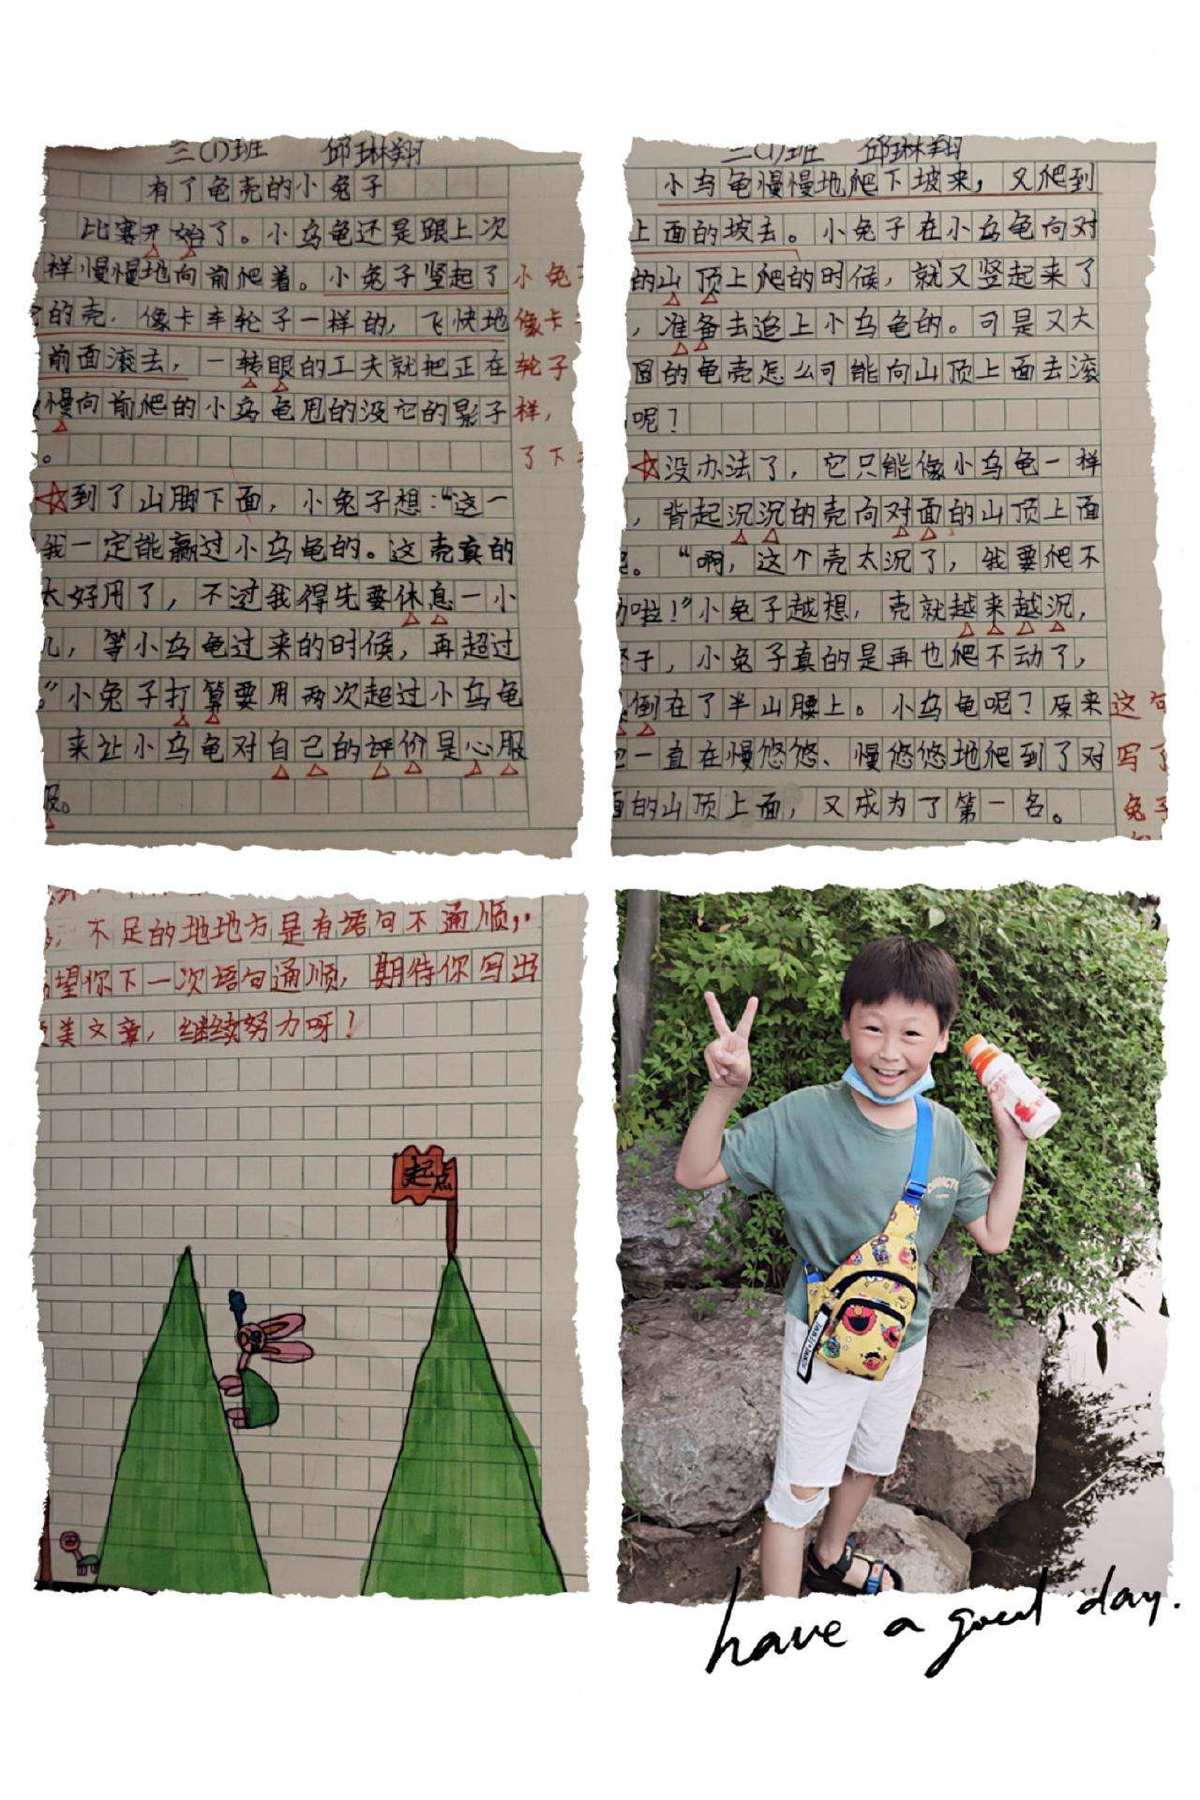 三(1)班 邱琳翔
有了龟壳的小兔子
比赛开始了。小乌龟还是跟上次
样慢慢地向前爬着。小兔子竖起了
的壳,像卡车轮子一样的,飞快地
前面滚去,一转眼的工夫就把正在
慢向前爬的小乌龟甩的没它的影子
。
到了山脚下面,小兔子想:“这一
我一定能赢过小乌龟的。这壳真的
太好用了,不过我得先要休息一小
儿,等小乌龟过来的时候,再超过
。”小兔子打算要用两次超过小乌龟
来让小乌龟对自己的评价是心服
服。
小兔
像卡
轮子
样,
了下
三(1)班 邱琳翔
小乌龟慢慢地爬下坡来,又爬到
上面的坡去。小兔子在小乌龟向对
的山顶上爬的时候,就又竖起来了
,准备去追上小乌龟的。可是又大
圆的龟壳怎么可能向山顶上面去滚
呢?
没办法了,它只能像小乌龟一样
,背起沉沉的壳向对面的山顶上面
。“啊,这个壳太沉了,我要爬不
动啦!”小兔子越想,壳就越来越沉,
于,小兔子真的是再也爬不动了,
倒在了半山腰上。小乌龟呢?原来
一直在慢悠悠、慢悠悠地爬到了对
面的山顶上面,又成为了第一名。
这句
写了
兔子
,不足的地地方是有语句不通顺,
望你下一次语句通顺,期待你写出
美文章,继续努力呀!
起点
have a good day.